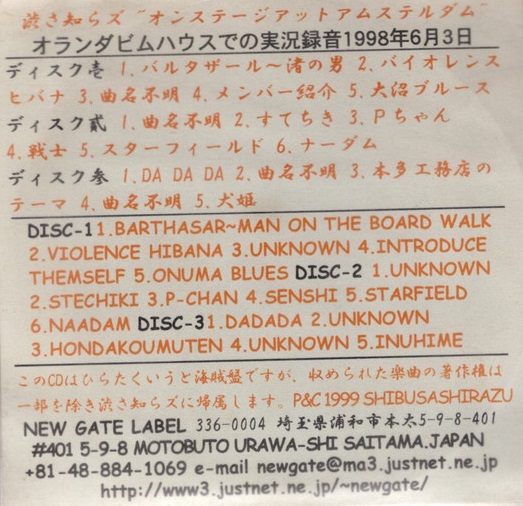 渋さ知らズ "オンステージアットアムステルダム"
オランダビムハウスでの実況録音1998年6月3日
ディスク壱 1.バルタザール〜渚の男 2.バイオレンス
ヒバナ 3.曲名不明 4.メンバー紹介 5.大沼ブルース
ディスク貳 1.曲名不明 2.すてちき 3.Pちゃん
4.戦士 5.スターフィールド 6.ナーダム
ディスク参 1.DA DA DA 2.曲名不明 3.本多工務店の
テーマ 4.曲名不明 5.犬姫
DISC-1 1.BARTHASAR~MAN ON THE BOARD WALK
2.VIOLENCE HIBANA 3.UNKNOWN 4.INTRODUCE
THEMSELF 5.ONUMA BLUES DISC-2 1.UNKNOWN
2.STECHIKI 3.P-CHAN 4.SENSHI 5.STARFIELD
6.NAADAM DISC-3 1.DADADA 2.UNKNOWN
3.HONDAKOUMUTEN 4.UNKNOWN 5.INUHIME
このCDはひらたくいうと海賊盤ですが、収められた楽曲の著作権は
一部を除き渋さ知らズに帰属します。P&C 1999 SHIBUSASHIRAZU
NEW GATE LABEL 336-0004 埼玉県浦和市本太5-9-8-401
#401 5-9-8 MOTOBUTO URAWA-SHI SAITAMA.JAPAN
+81-48-884-1069 e-mail newgate@ma3.justnet.ne.jp
http://www3.justnet.ne.jp/~newgate/